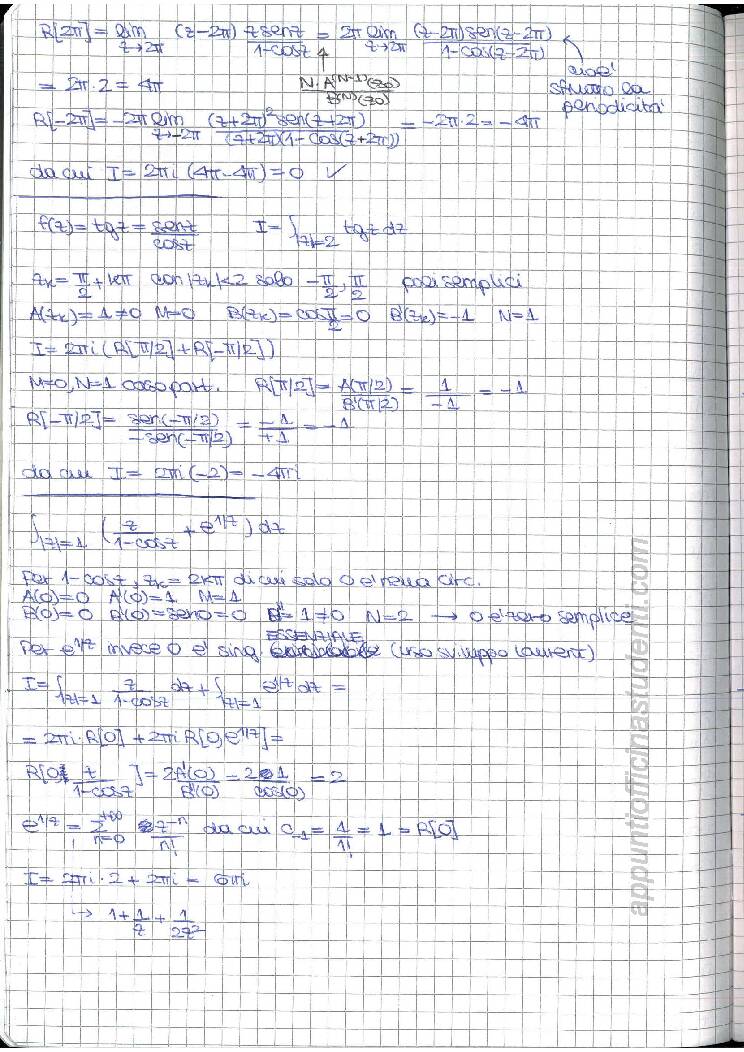 R[2π] = lim_{z→2π} (z-2π) z senz / 1-cosz = 2π lim_{z→2π} (z-2π)sen(z-2π) / 1-cos(z-2π)
cioè sfrutto la periodicità
= 2π·2 = 4π
N·A^(N-1)(z0) / B^(N)(z0)
R[-2π] = -2π lim_{z→-2π} (z+2π)² sen(z+2π) / (z+2π)(1-cos(z+2π)) = -2π·2 = -4π
da cui I = 2πi (4π-4π) = 0 ✓
f(z) = tgz = senz / cosz I = ∫_{|z|=2} tgz dz
zk = π/2 + kπ con |zk|<2 solo -π/2, π/2 poli semplici
A(zk) = 1 ≠ 0 M=0 B(zk) = cos π/2 = 0 B'(zk) = -1 N=1
I = 2πi (R[π/2] + R[-π/2])
M=0, N=1 caso part. R[π/2] = A(π/2) / B'(π/2) = 1 / -1 = -1
R[-π/2] = sen(-π/2) / -sen(-π/2) = -1 / +1 = -1
da cui I = 2πi (-2) = -4πi
∫_{|z|=1} (z / 1-cosz + e^{1/z}) dz
Per 1-cosz, zk = 2kπ di cui solo 0 è nella circ.
A(0)=0 A'(0)=1 M=1
B(0)=0 B'(0)=sen0=0 B''=1≠0 N=2 → 0 è zero semplice
ESSENZIALE
Per e^{1/z} invece 0 è sing. (uso sviluppo Laurent)
I = ∫_{|z|=1} z / 1-cosz dz + ∫_{|z|=1} e^{1/z} dz =
= 2πi·R[0] + 2πi R[0, e^{1/z}] =
R[0, z / 1-cosz] = 2A'(0) / B''(0) = 2·1 / cos(0) = 2
e^{1/z} = Σ_{n=0}^{+∞} z^{-n} / n! da cui c_{-1} = 1/1! = 1 = R[0]
I = 2πi·2 + 2πi = 6πi
→ 1 + 1/z + 1/2z²
appuntiofficinastudenti.com